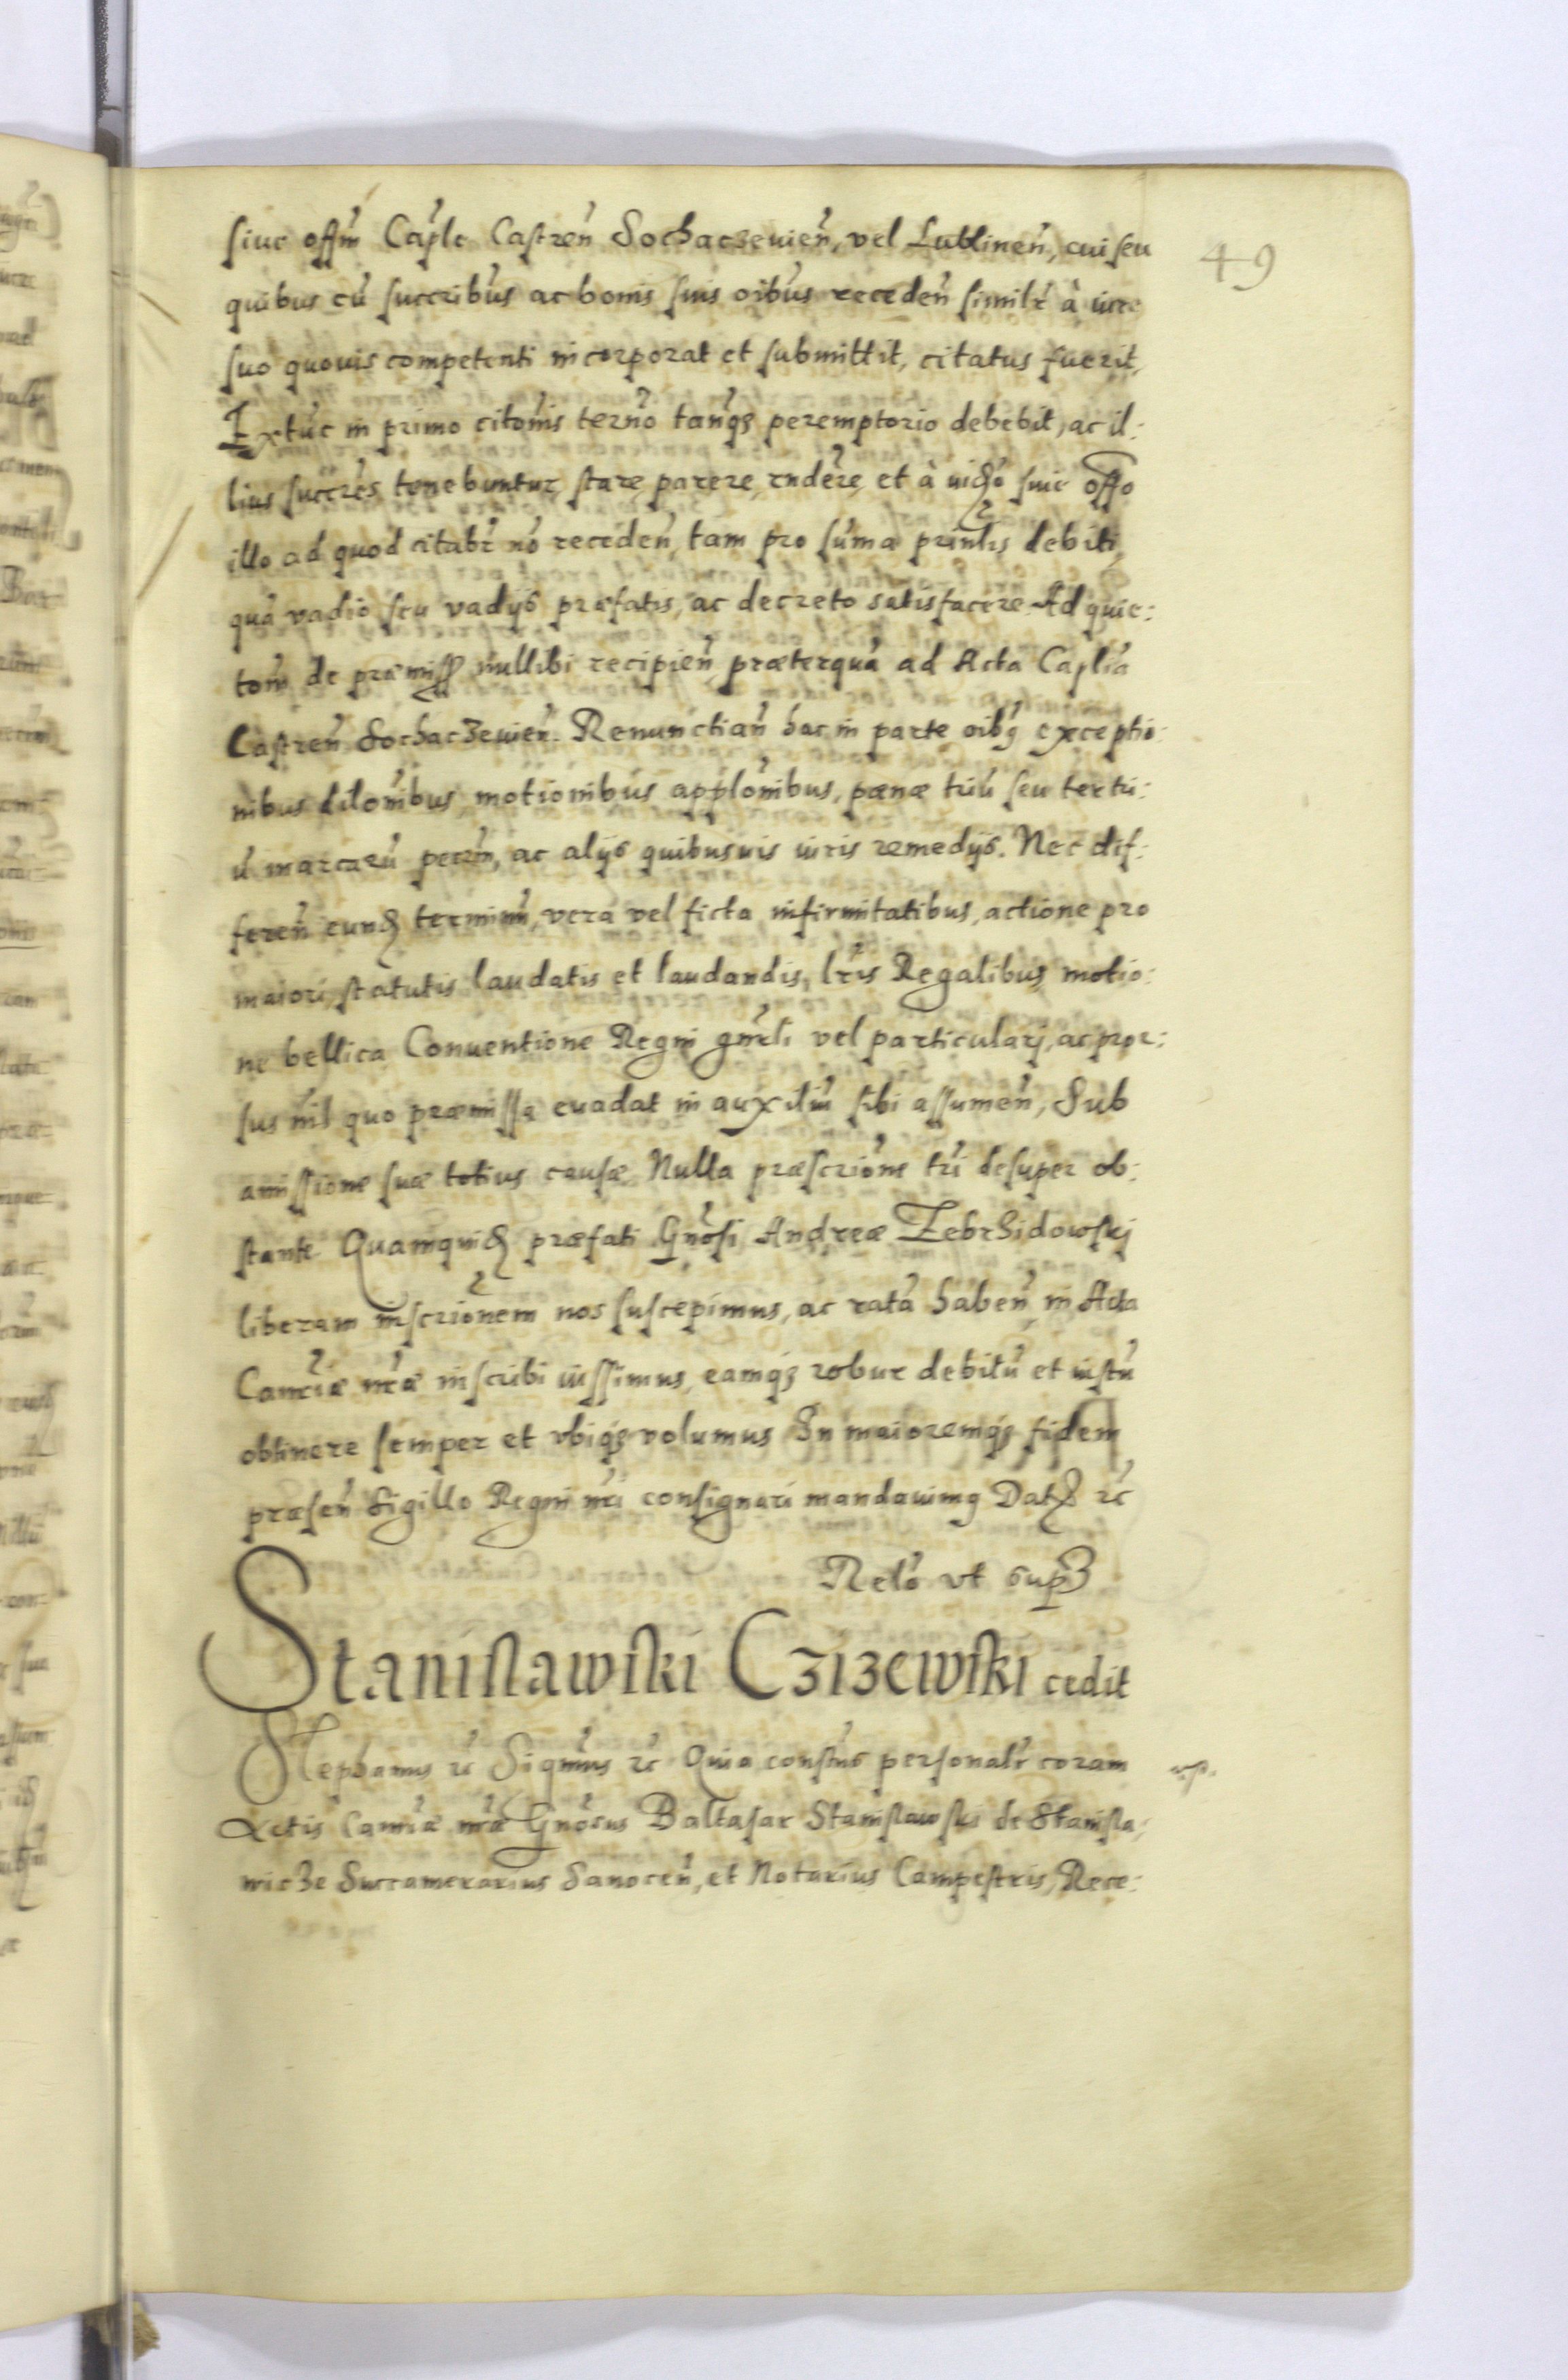 49
siue offm̃ Capl̃e Castreñ Sochaczeuieñ, vel Lublineñ, cui seu
quibus cũ succribũs ac bonis suis oĩbus recedeñ similr̃ à iure
suo quouis competenti incorporat et submittit, citatus fuerit,
Extũc in primo citoñis terño tanq̃ʒ peremptorio debebit, ac il:
lius succr̃es tenebuntur stare, parere, rndẽre, et à iudõ siue offo
illo ad quod citabr̃ nõ recedeñ, tam pro sũma prinlis debiti,
quã vadio seu vadijs præfatis, ac decreto satisfacere. Ad quie:
toñ de præmiss nullibi recipieñ, præterquã ad Acta Caplia
Castreñ Sochaczeuieñ. Renunctiañ hac in parte oĩbʒ exceptio:
nibus diloñibus motionibus apploñibus, pœnæ triũ seu tertri:
ũ marcarũ pecũ, ac alijs quibusuis iuris remedijs. Nec dif:
fereñ eund terminũ, vera vel ficta infirmitatibus, actione pro
maiori, statutis laudatis et laudandis, lr̃is Regalibus, motio:
ne bellica Conuentione Regni gnr̃li vel particularj, ac pror:
sus nil quo præmissa euadat in auxiliũ sibi assumeñ, Sub
amissione suæ totius causæ. Nulla præscrioñe tr̃i desuper ob:
stante Quamquid præfati Gnõsi Andreæ Zebrzidowskj
liberam inscrioñem nos suscepimus, ac ratã habeñ, in Acta
Canr̃iæ nr̃æ inscribi iussimus, eamqʒ robur debitũ et iustũ
obtinere semper et vbiqʒ volumus In maioremqʒ fidem
præseñ Sigillo Regni nr̃i consignari mandauimq Dat̃ rc̃
Relõ vt supʒ
Stanislawski Czizewski cedit
Stephanus rc̃ Signm̃us rc̃ Quia constũs personalr̃ coram
Actis Canr̃iæ nr̃æ Gnõsus Baltasar Stanislawski de Stanisla:
wicze Succamerarius Sanoceñ, et Notarius Campestris, Rece: